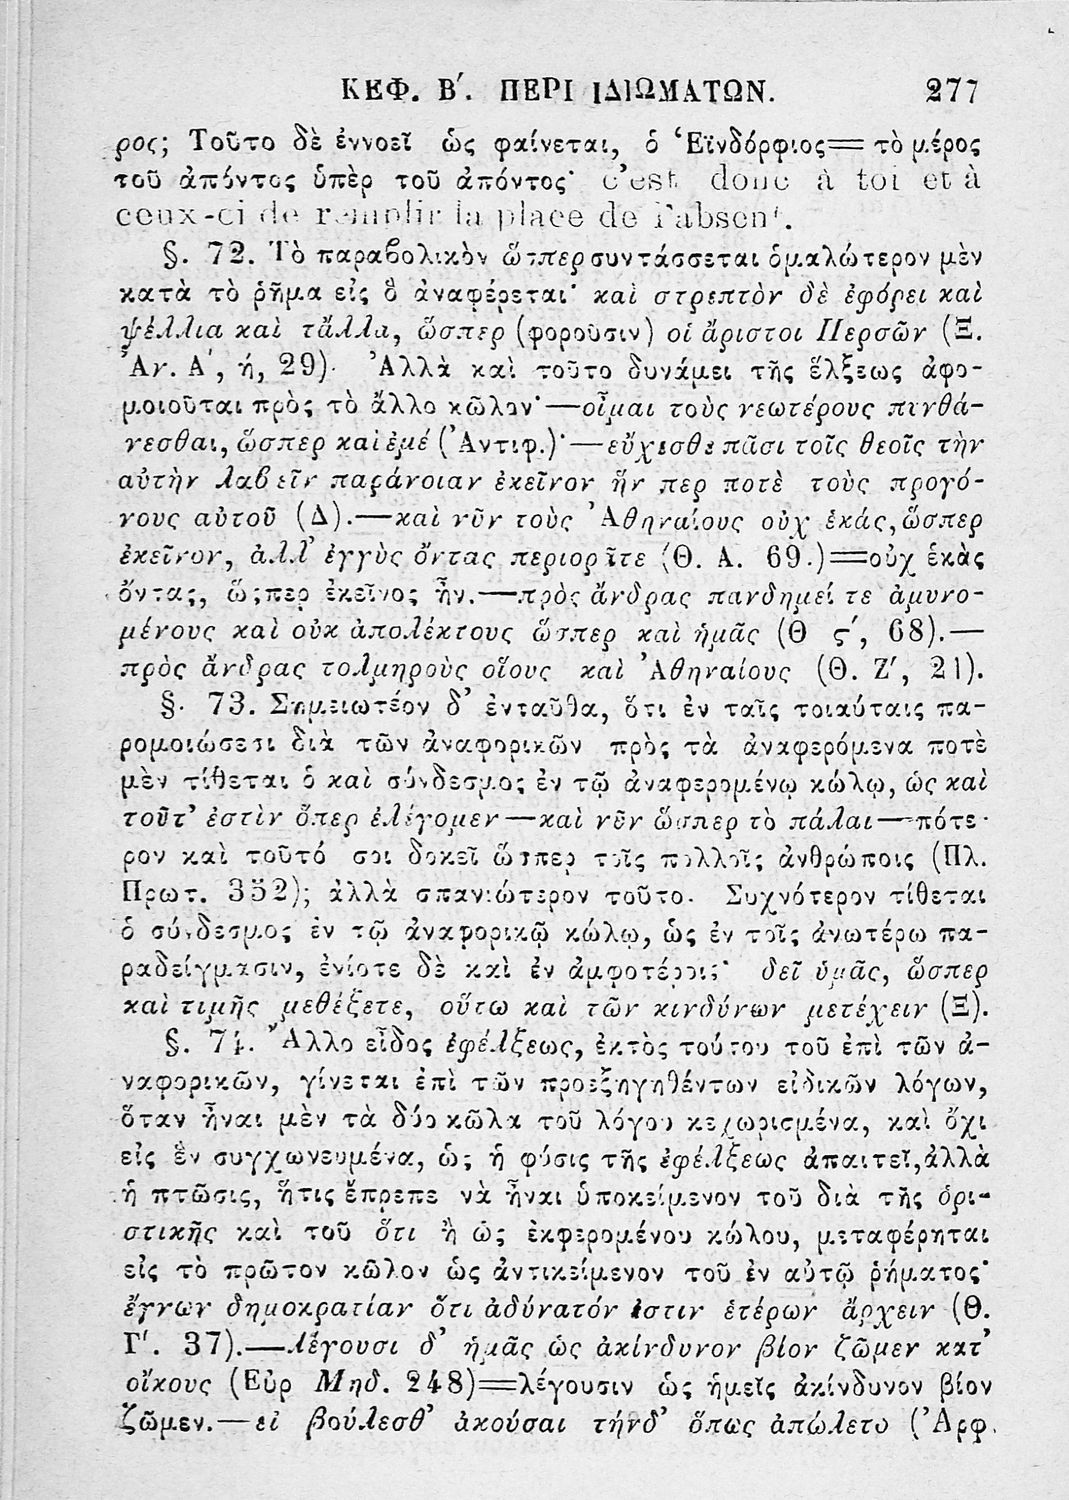 ΚΕΦ. Β΄. ΠΕΡΙ ΙΔΙΩΜΑΤΩΝ. 277
ρος; Τοῦτο δὲ ἐννοεῖ ὡς φαίνεται, ὁ Ἑϊνδόρφιος= τὸ μέρος
τοῦ ἀπόντος ὑπὲρ τοῦ ἀπόντος· c'est donc à toi et à
ceux-ci de remplir la place de l'absent.
§. 72. Τὸ παραβολικὸν ὥσπερ συντάσσεται ὁμαλώτερον μὲν
κατὰ τὸ ῥῆμα εἰς ὃ ἀναφέρεται· καὶ στρεπτὸν δὲ ἐφόρει καὶ
ψέλλια καὶ τἄλλα, ὥσπερ (φοροῦσιν) οἱ ἄριστοι Περσῶν (Ξ.
Ἀν. Α΄, ή, 29)· Ἀλλὰ καὶ τοῦτο δυνάμει τῆς ἕλξεως ἀφο-
μοιοῦται πρὸς τὸ ἄλλο κῶλον·—οἶμαι τοὺς νεωτέρους πυνθά-
νεσθαι, ὥσπερ καὶ ἐμέ (Ἀντιφ.)·—εὔχεσθε πᾶσι τοῖς θεοῖς τὴν
αὐτὴν λαβεῖν παράνοιαν ἐκεῖνον ἥν περ ποτὲ τοὺς προγό-
νους αὐτοῦ (Δ).—καὶ νῦν τοὺς Ἀθηναίους οὐχ ἑκάς, ὥσπερ
ἐκεῖνον, ἀλλ' ἐγγὺς ὄντας περιορᾶτε (Θ. Α. 69.)=οὐχ ἑκὰς
ὄντας, ὥσπερ ἐκεῖνος ἦν.—πρὸς ἄνδρας πανδημεί τε ἀμυνο-
μένους καὶ οὐκ ἀπολέκτους ὥσπερ καὶ ἡμᾶς (Θ ς΄, 68).—
πρὸς ἄνδρας τολμηροὺς οἵους καὶ Ἀθηναίους (Θ. Ζ΄, 21).
§· 73. Σημειωτέον δ' ἐνταῦθα, ὅτι ἐν ταῖς τοιαύταις πα-
ρομοιώσεσι διὰ τῶν ἀναφορικῶν πρὸς τὰ ἀναφερόμενα ποτὲ
μὲν τίθεται ὁ καὶ σύνδεσμος ἐν τῷ ἀναφερομένῳ κώλῳ, ὡς καὶ
τοῦτ' ἐστὶν ὅπερ ἐλέγομεν—καὶ νῦν ὥσπερ τὸ πάλαι—πότε·
ρον καὶ τοῦτό σοι δοκεῖ ὥσπερ τοῖς πολλοῖς ἀνθρώποις (Πλ.
Πρωτ. 352); ἀλλὰ σπανιώτερον τοῦτο. Συχνότερον τίθεται
ὁ σύνδεσμος ἐν τῷ ἀναφορικῷ κώλῳ, ὡς ἐν τοῖς ἀνωτέρω πα-
ραδείγμασιν, ἐνίοτε δὲ καὶ ἐν ἀμφοτέροις· δεῖ ὑμᾶς, ὥσπερ
καὶ τιμῆς μεθέξετε, οὕτω καὶ τῶν κινδύνων μετέχειν (Ξ).
§. 74. Ἄλλο εἶδος ἐφέλξεως, ἐκτὸς τούτου τοῦ ἐπὶ τῶν ἀ-
ναφορικῶν, γίνεται ἐπὶ τῶν προεξηγηθέντων εἰδικῶν λόγων,
ὅταν ἦναι μὲν τὰ δύο κῶλα τοῦ λόγου κεχωρισμένα, καὶ ὄχι
εἰς ἓν συγχωνευμένα, ὡς ἡ φύσις τῆς ἐφέλξεως ἀπαιτεῖ, ἀλλὰ
ἡ πτῶσις, ἥτις ἔπρεπε νὰ ἦναι ὑποκείμενον τοῦ διὰ τῆς ὁρι-
στικῆς καὶ τοῦ ὅτι ἢ ὡς ἐκφερομένου κώλου, μεταφέρηται
εἰς τὸ πρῶτον κῶλον ὡς ἀντικείμενον τοῦ ἐν αὐτῷ ῥήματος·
ἔγνων δημοκρατίαν ὅτι ἀδύνατόν ἐστιν ἑτέρων ἄρχειν (Θ.
Γ΄. 37).—λέγουσι δ' ἡμᾶς ὡς ἀκίνδυνον βίον ζῶμεν κατ'
οἴκους (Εὐρ Μηδ. 248)=λέγουσιν ὡς ἡμεῖς ἀκίνδυνον βίον
ζῶμεν.—εἰ βούλεσθ' ἀκοῦσαι τήνδ' ὅπως ἀπώλετο (Ἀρφ.